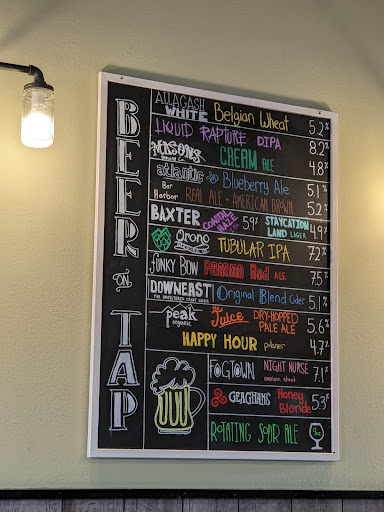 BEER on TAP
ALLAGASH WHITE Belgian Wheat 5.2%
LIQUID RAPTURE DIPA 8.2%
MASON'S BREWING CO. CREAM ALE 4.8%
atlantic Blueberry Ale 5.1%
Bar Harbor REAL ALE - AMERICAN BROWN 5.2%
BAXTER COASTAL HAZE 5.9% STAYCATION LAND LAGER 4.9%
Orono TUBULAR IPA 7.2%
FUNKY BOW Panama Red ALE 7.5%
DOWNEAST Original Blend Cider 5.1%
peak organic the Juice DRY-HOPPED PALE ALE 5.6%
HAPPY HOUR pilsner 4.7%
FOGTOWN NIGHT NURSE american stout 7.1%
GEAGHANS Honey Blonde 5.3%
ROTATING SOUR ALE